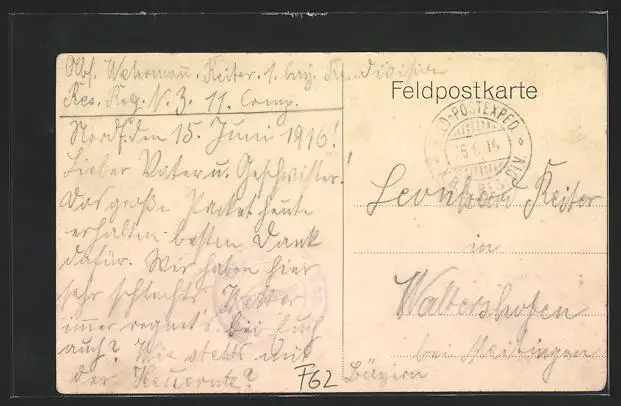 Abs. Wehrmann. Reiter. 1. bay. Rs. Division
Res. Reg. N. 3. 11. Comp.
Nordf. den 15. Juni 1916!
Lieber Vater u. Geschwister!
Das große Packet heute
erhalten. besten Dank
dafür. Wir haben hier
sehr schlechts Wetter
immer regnet's bei Euch
auch? Wie stehts mit
der Heuernte?
F62
Feldpostkarte
FELD-POSTEXPED
16.6.16
DIV.
Leonhard Reiter
in
Waltershofen
bei Meitingen
Bayern